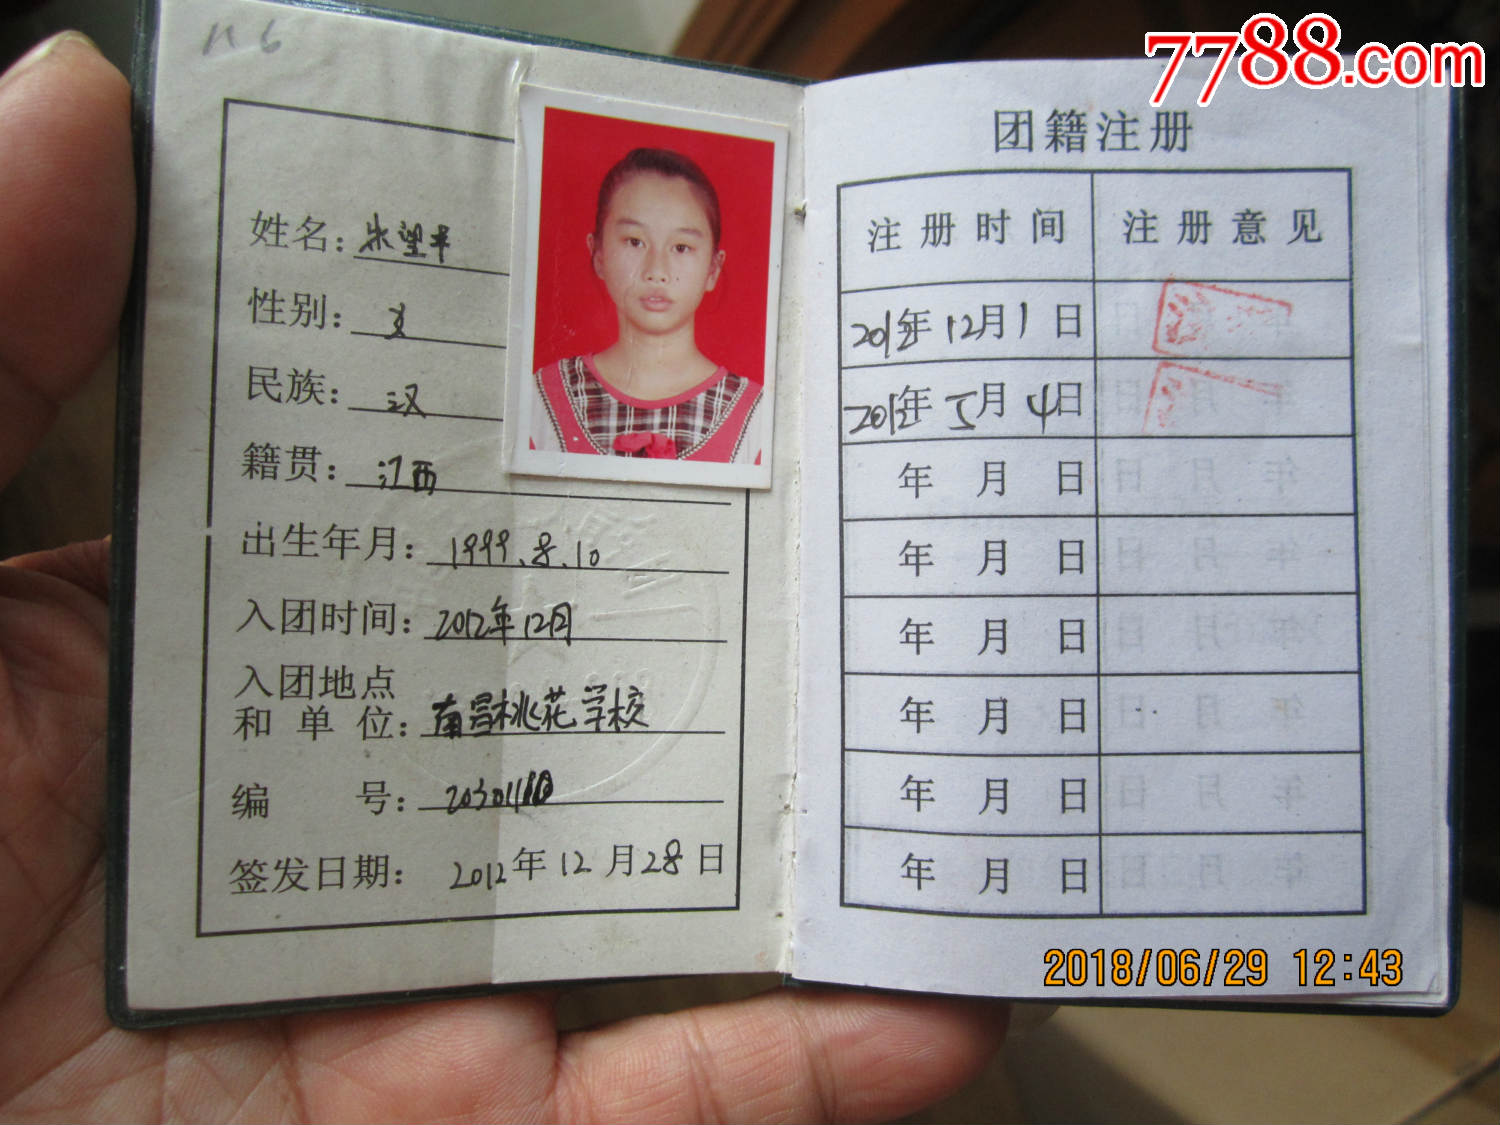 7788.com
姓名：
性别：女
民族：汉
籍贯：江西
出生年月：1999.8.10
入团时间：2012年12月
入团地点
和单位：南昌桃花学校
编号：
签发日期：2012年12月28日
团籍注册
注册时间 注册意见
年12月1日
年5月4日
年 月 日
年 月 日
年 月 日
年 月 日
年 月 日
年 月 日
2018/06/29 12:43